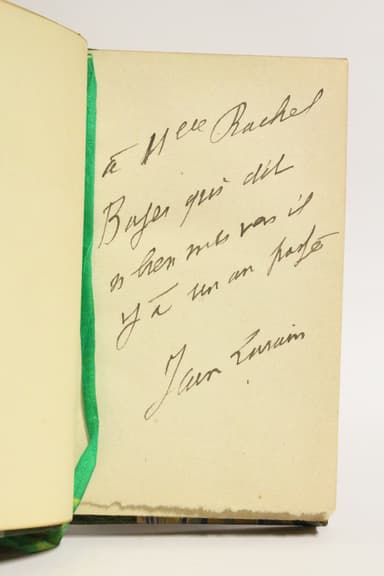 à Mlle Rachel
Boyer qui dit
si bien mes vers il
y a un an passé
Jean Lorrain